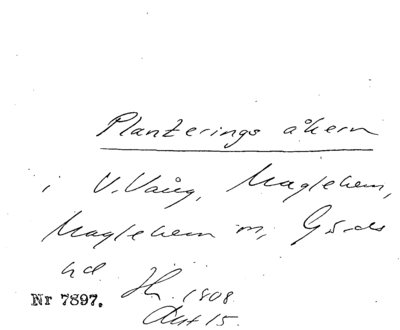 Planterings åkern
i V. Vång, Maglehem,
Maglehem sn, Gärds
hd H. 1808
Nr 7897.
Akt 15.